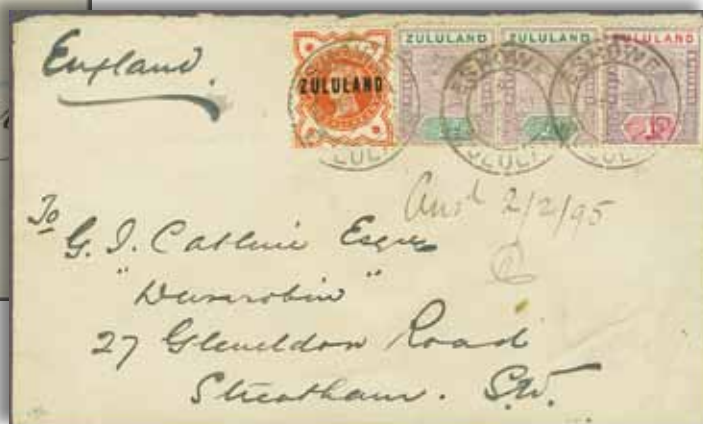 England.
ZULULAND ZULULAND ZULULAND ZULULAND
ESHOWE ESHOWE
To G. J. Esqre
"Dunrobin"
27 Gleneldon Road
Streatham. S.W.
2/2/95